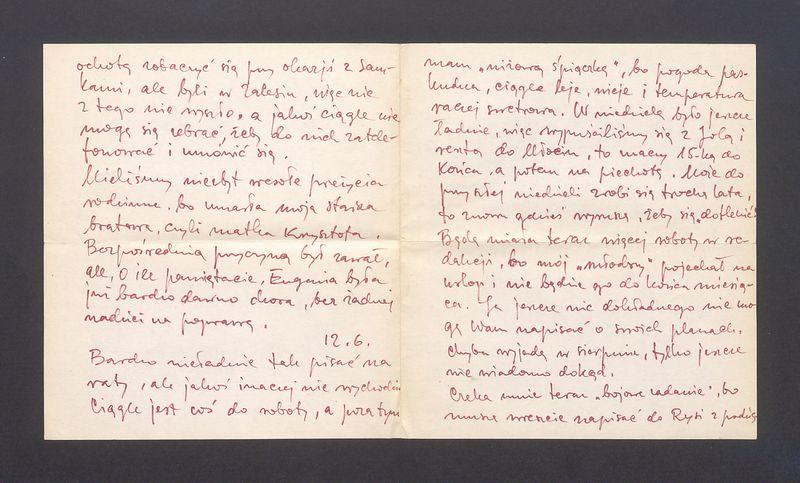 ochotą zobaczyć się przy okazji z Sam-
kami, ale byli w Zalesiu, więc nic
z tego nie wyszło, a jakoś ciągle nie
mogą się zebrać, żeby do nich zatele-
fonować i umówić się.
Mieliśmy niezbyt wesołe przeżycia
rodzinne, bo umarła moja starsza
bratowa, czyli matka Krzysztofa.
Bezpośrednią przyczyną był zawał,
ale, o ile pamiętacie, Eugenia była
już bardzo dawno chora, bez żadnej
nadziei na poprawę.
12.6.
Bardzo nieładnie tak pisać na
raty, ale jakoś inaczej nie wychodzi.
Ciągle jest coś do roboty, a poza tym
mam „niżową śpiączkę”, bo pogoda pas-
kudna, ciągle leje, wieje i temperatura
raczej swetrowa. W niedzielę było jeszcze
ładnie, więc wypuściliśmy się z Jolą i
resztą do to znaczy 15-ką do
końca, a potem na piechotę. Może do
przyszłej niedzieli zrobi się trochę lata,
to znowu gdzieś wyruszę, żeby się „dotlenić”.
Będę miała teraz więcej roboty w re-
dakcji, bo mój „młodszy” pojechał na
urlop i nie będzie go do końca miesią-
ca. Ja jeszcze nic dokładnego nie mo-
gę Wam napisać o swoich planach.
Chyba wyjadę w sierpniu, tylko jeszcze
nie wiadomo dokąd.
Czeka mnie teraz „bojowe zadanie”, bo
muszę wreszcie napisać do Rysi z podzię